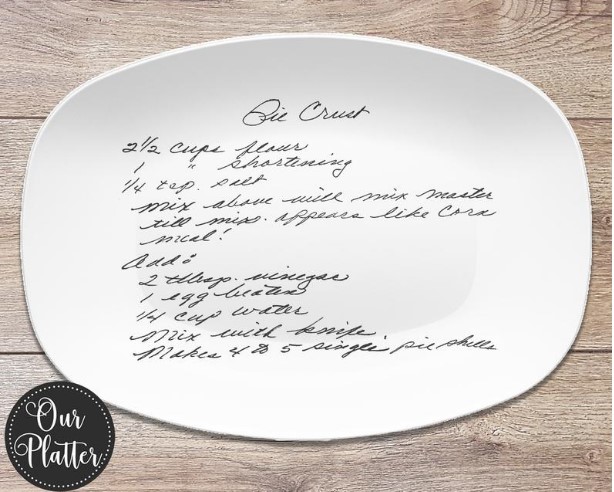 Pie Crust
2 1/2 cups flour
1 " shortening
1/4 tsp. salt
mix above with mix master
till mix. appears like corn
meal!
Add:
2 tblesp. vinegar
1 egg beaten
1/4 cup water
Mix with knife.
Makes 4 to 5 single pie shells
Our
Platter